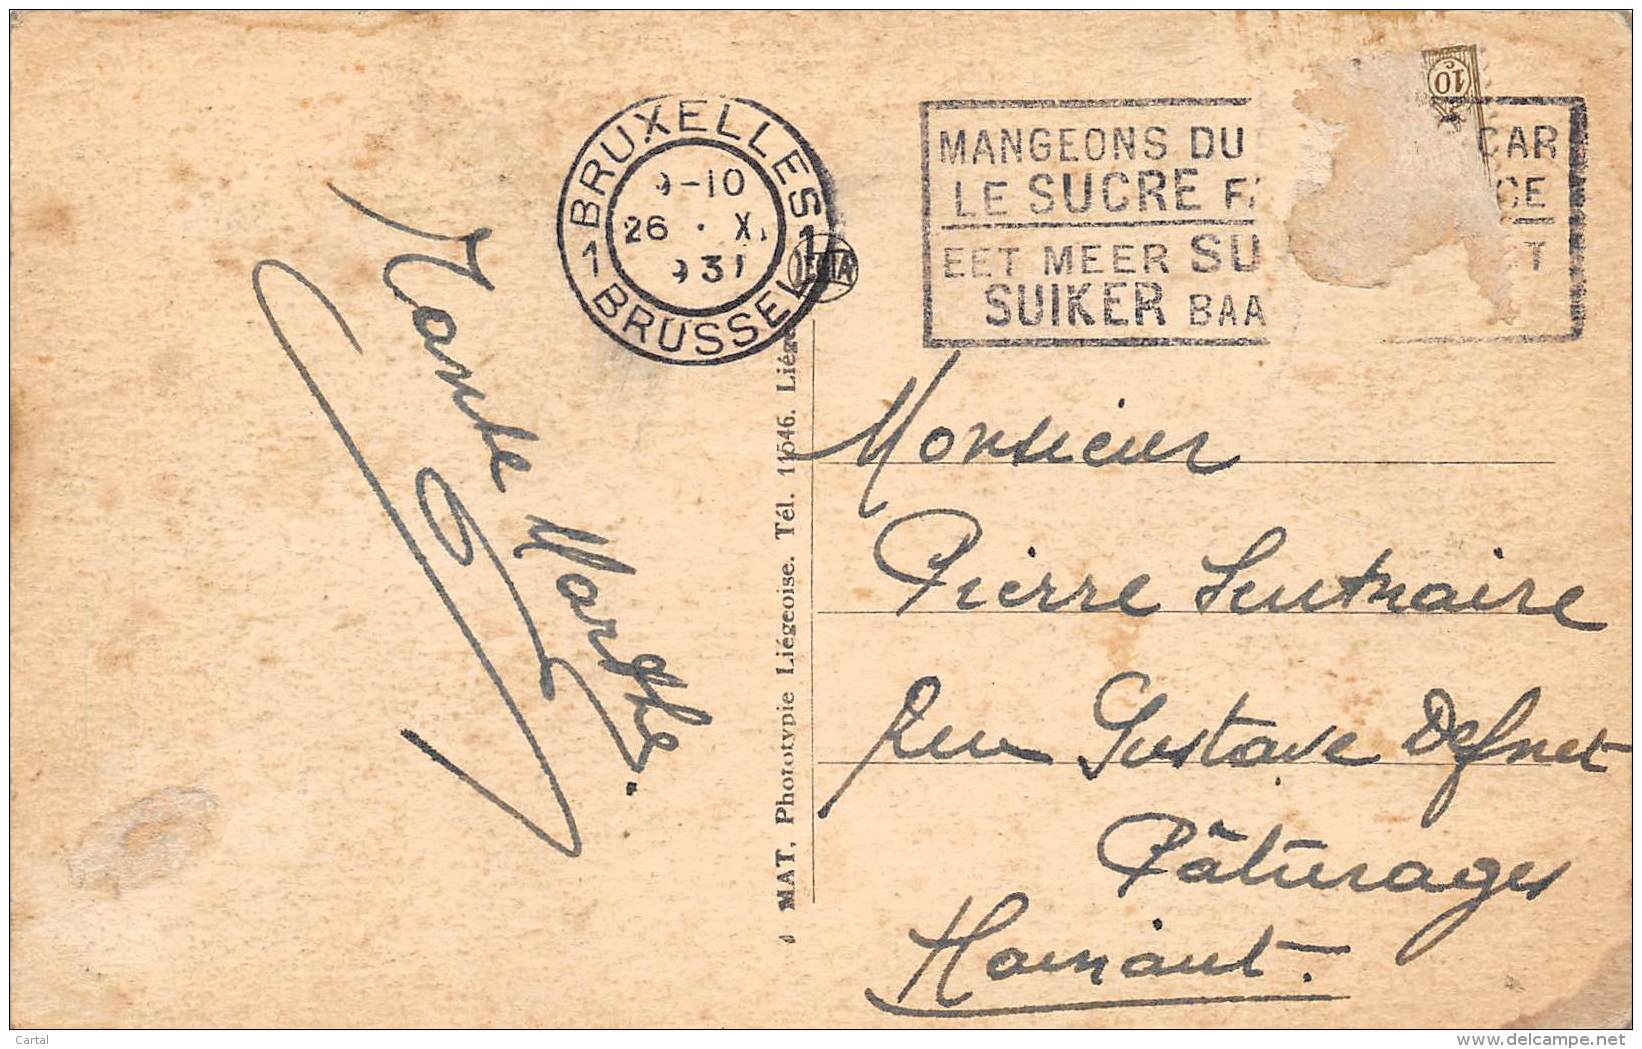 BRUXELLES
9-10
26 . X.
931
1 BRUSSEL 1
MANGEONS DU CAR
LE SUCRE FA CE
EET MEER SU T
SUIKER BAA
10 c
Tante Marthe.
MAT. Phototypie Liégeoise. Tél. 11546. Liége
Monsieur
Pierre
Rue Gustave Defnet
Pâturages
Hainaut.
Cartal
www.delcampe.net